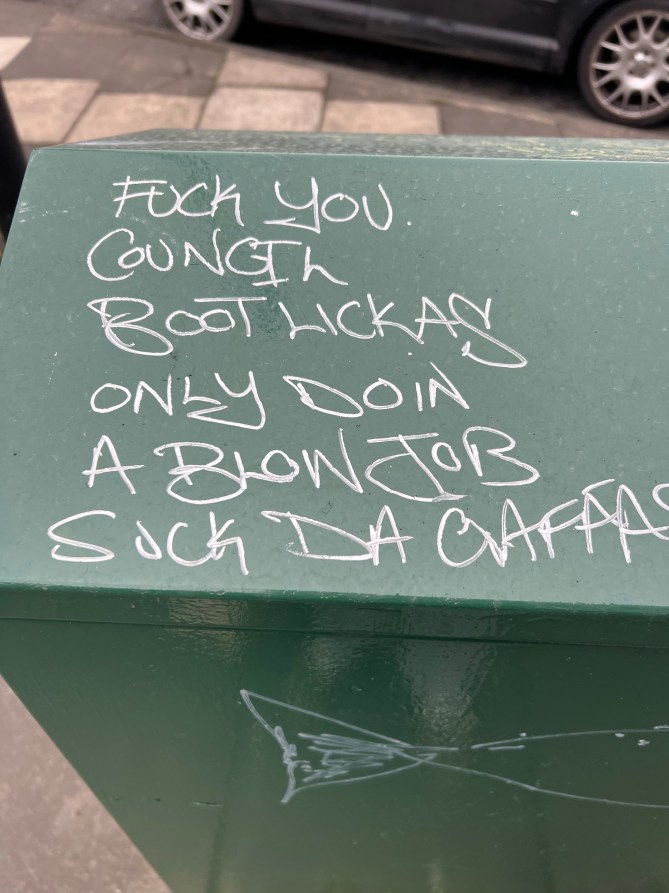 FUCK YOU
COUNCIL
BOOT LICKAS
ONLY DOIN
A BLOW JOB
SUCK DA GAFFAS